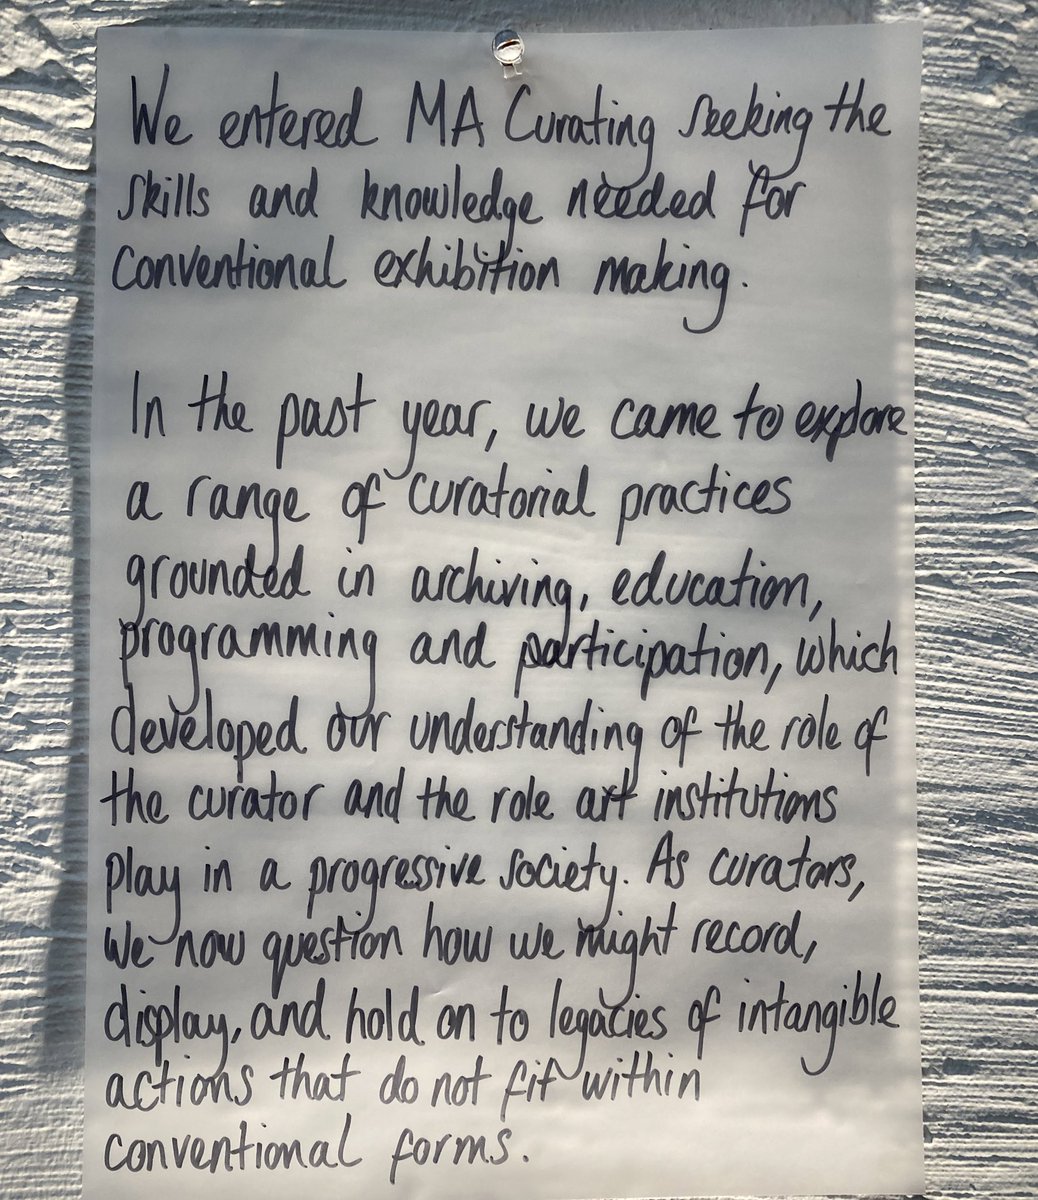 We entered MA Curating seeking the
skills and knowledge needed for
conventional exhibition making.
In the past year, we came to explore
a range of curatorial practices
grounded in archiving, education,
programming and participation, which
developed our understanding of the role of
the curator and the role art institutions
play in a progressive society. As curators,
we now question how we might record,
display, and hold on to legacies of intangible
actions that do not fit within
conventional forms.